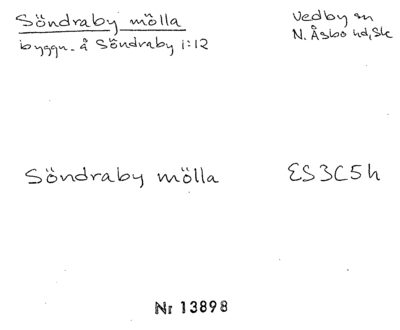 Söndraby mölla
byggn. å Söndraby 1:12
Vedby sn
N. Åsbo hd, Sk
Söndraby mölla
ES3C5h
Nr 13898